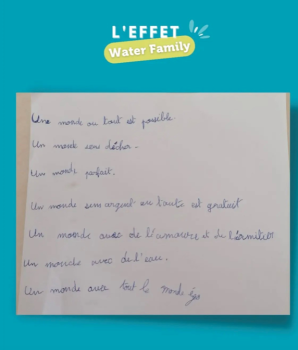 L'EFFET
Water Family
Une monde ou tout est possible.
Un monde sens décher.
Un monde parfait.
Un monde sans argent ou toute est gratuit
Un monde avec de l'amoure et de l'armitier
Un monde avec de l'eau.
Un monde avec tout le monde